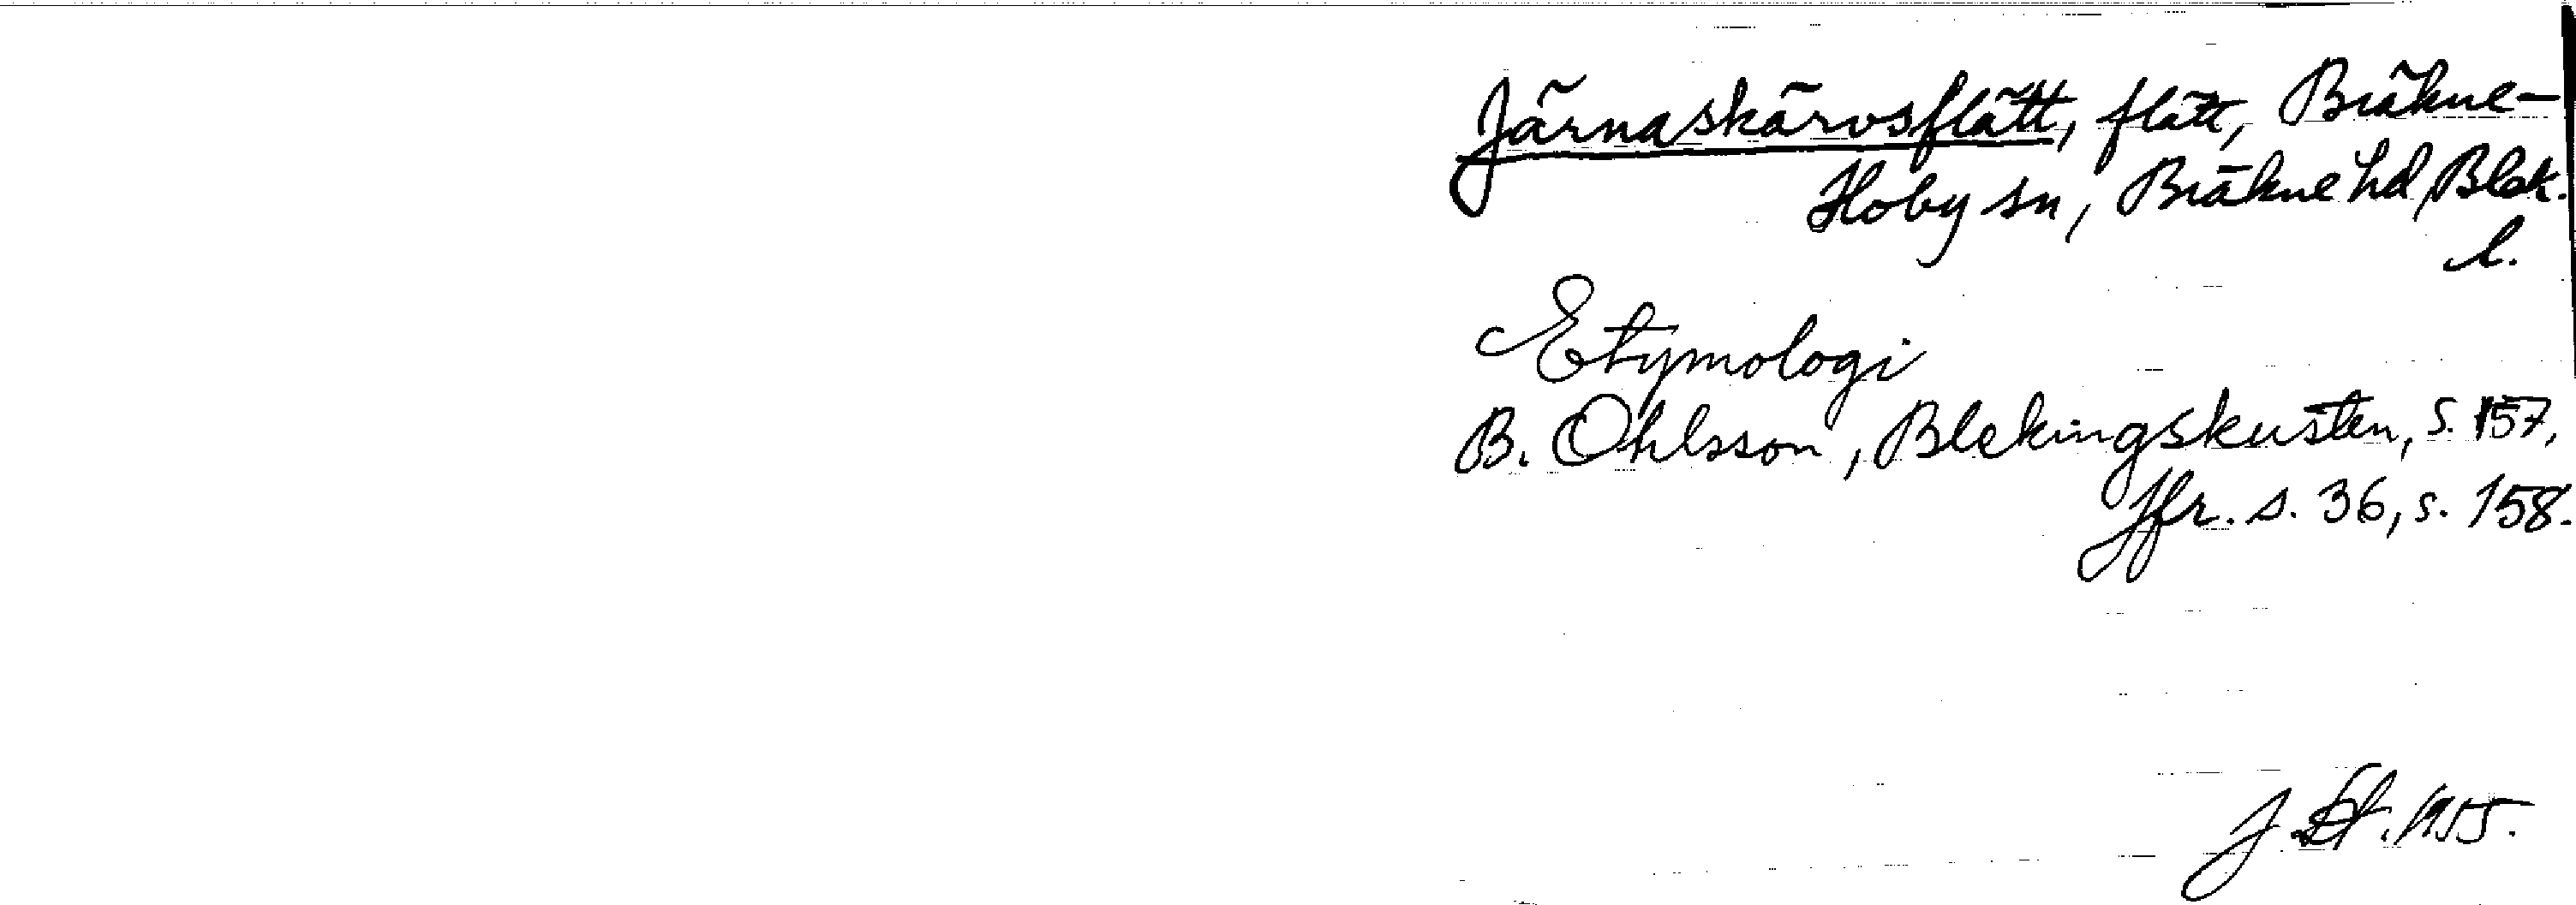 Järnaskärvsflätt, flätt, Bräkne-
Hoby sn, Bräkne hd, Blek.
l.
Etymologi
B. Ohlsson, Blekingskusten, s. 157,
Jfr. s. 36, s. 158.
J. St. 1955.